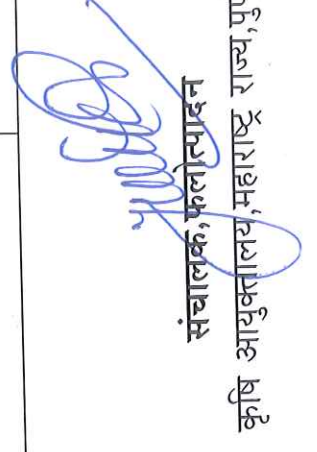 संचालक,फलोत्पादन
कृषि आयुक्तालय,महाराष्ट्र राज्य,पु